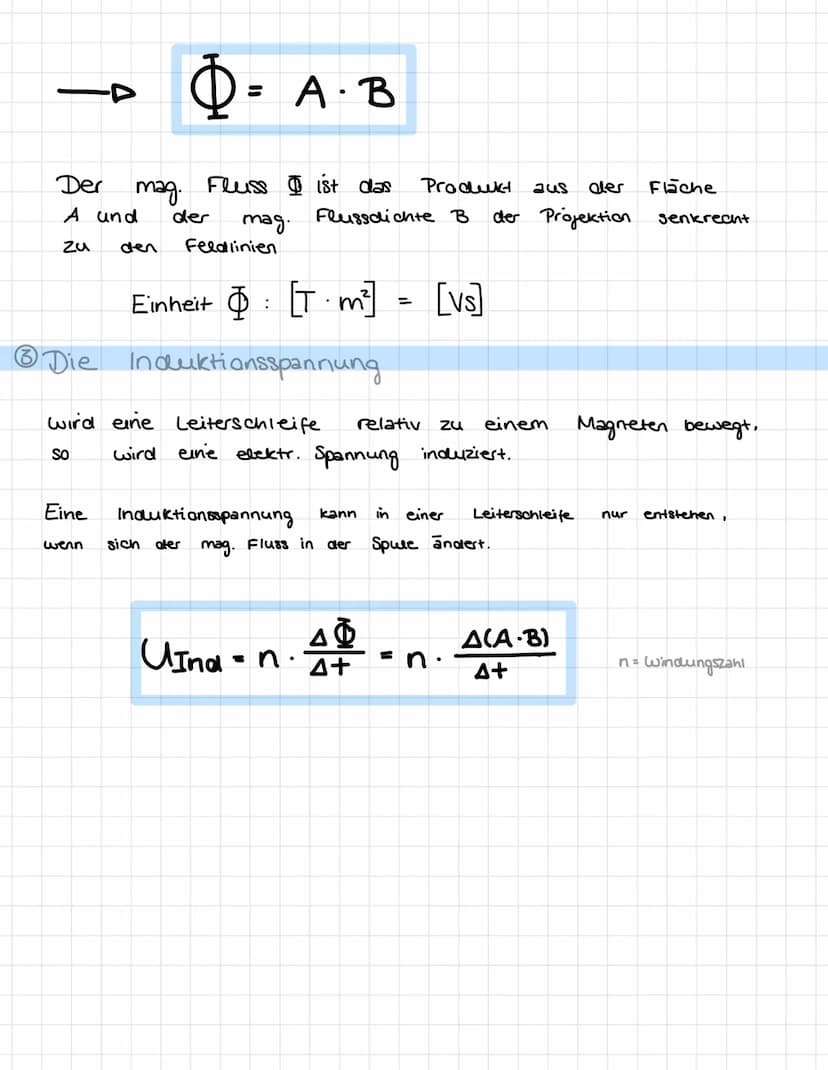 → Φ = A · B
Der mag. Fluss Φ ist das Produkt aus der Fläche
A und der mag. Flussdichte B der Projektion senkrecht
zu den Feldlinien
Einheit Φ : [T · m²] = [Vs]
③ Die Induktionsspannung
Wird eine Leiterschleife relativ zu einem Magneten bewegt,
so wird eine elektr. Spannung induziert.
Eine Induktionsspannung kann in einer Leiterschleife nur entstehen,
wenn sich der mag. Fluss in der Spule ändert.
U_Ind = n · ΔΦ/Δt = n · Δ(A·B)/Δt n = Windungszahl